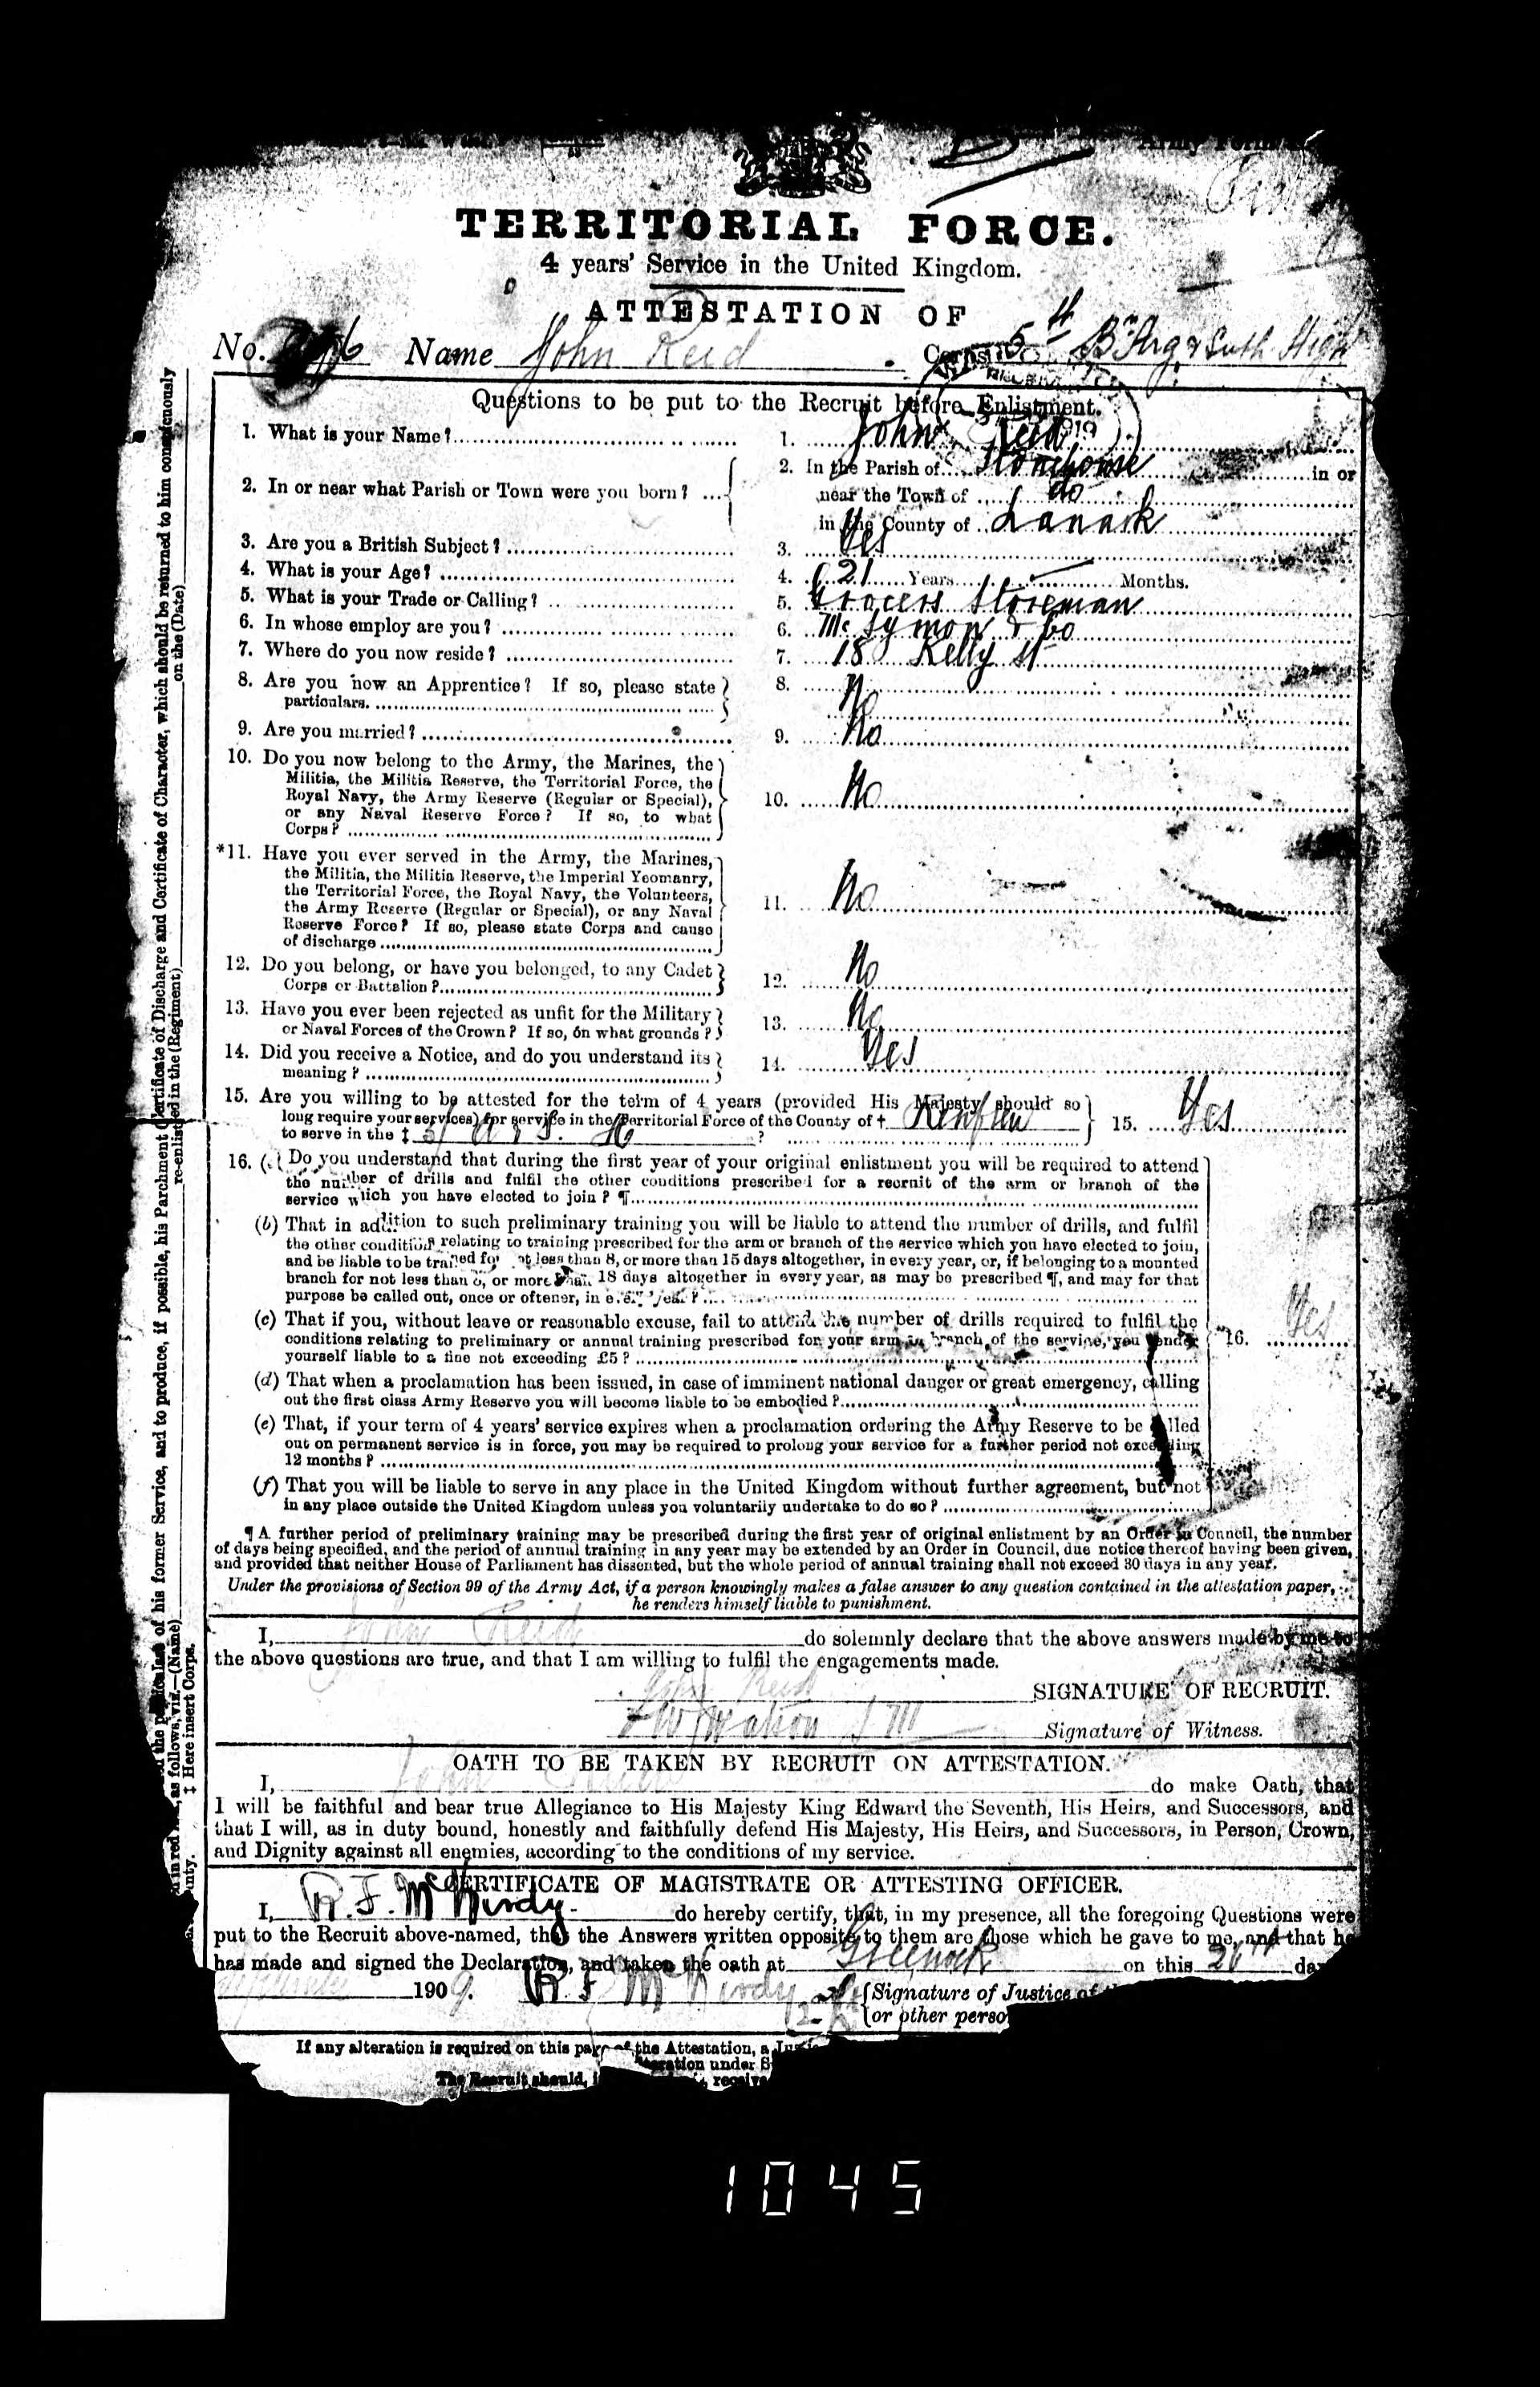 Army Form
TERRITORIAL FORCE.
4 years' Service in the United Kingdom.
ATTESTATION OF
No. Name John Reid Corps 5th Bn Arg & Suth High
Questions to be put to the Recruit before Enlistment.
1. What is your Name? 1. John Reid
2. In or near what Parish or Town were you born? 2. In the Parish of Stonehouse in or
near the Town of do
in the County of Lanark
3. Are you a British Subject? 3. Yes
4. What is your Age? 4. 21 Years Months.
5. What is your Trade or Calling? 5. Grocers Storeman
6. In whose employ are you? 6. McSymon & Co
7. Where do you now reside? 7. 18 Kelly St
8. Are you now an Apprentice? If so, please state 8. No
particulars.
9. Are you married? 9. No
10. Do you now belong to the Army, the Marines, the
Militia, the Militia Reserve, the Territorial Force, the
Royal Navy, the Army Reserve (Regular or Special), 10. No
or any Naval Reserve Force? If so, to what
Corps?
*11. Have you ever served in the Army, the Marines,
the Militia, the Militia Reserve, the Imperial Yeomanry,
the Territorial Force, the Royal Navy, the Volunteers,
the Army Reserve (Regular or Special), or any Naval 11. No
Reserve Force? If so, please state Corps and cause
of discharge
12. Do you belong, or have you belonged, to any Cadet 12. No
Corps or Battalion?
13. Have you ever been rejected as unfit for the Military 13. No
or Naval Forces of the Crown? If so, on what grounds?
14. Did you receive a Notice, and do you understand its 14. Yes
meaning?
15. Are you willing to be attested for the term of 4 years (provided His Majesty should so
long require your services) for service in the Territorial Force of the County of † Renfrew 15. Yes
to serve in the ‡ 5/ A & S. H ?
16. (a) Do you understand that during the first year of your original enlistment you will be required to attend
the number of drills and fulfil the other conditions prescribed for a recruit of the arm or branch of the
service which you have elected to join? ¶
(b) That in addition to such preliminary training you will be liable to attend the number of drills, and fulfil
the other conditions relating to training prescribed for the arm or branch of the service which you have elected to join,
and be liable to be trained for not less than 8, or more than 15 days altogether, in every year, or, if belonging to a mounted
branch for not less than 8, or more than 18 days altogether in every year, as may be prescribed ¶, and may for that
purpose be called out, once or oftener, in every year?
(c) That if you, without leave or reasonable excuse, fail to attend the number of drills required to fulfil the
conditions relating to preliminary or annual training prescribed for your arm or branch of the service, you render 16. Yes
yourself liable to a fine not exceeding £5?
(d) That when a proclamation has been issued, in case of imminent national danger or great emergency, calling
out the first class Army Reserve you will become liable to be embodied?
(e) That, if your term of 4 years' service expires when a proclamation ordering the Army Reserve to be called
out on permanent service is in force, you may be required to prolong your service for a further period not exceeding
12 months?
(f) That you will be liable to serve in any place in the United Kingdom without further agreement, but not
in any place outside the United Kingdom unless you voluntarily undertake to do so?
¶ A further period of preliminary training may be prescribed during the first year of original enlistment by an Order in Council, the number
of days being specified, and the period of annual training in any year may be extended by an Order in Council, due notice thereof having been given,
and provided that neither House of Parliament has dissented, but the whole period of annual training shall not exceed 30 days in any year.
Under the provisions of Section 99 of the Army Act, if a person knowingly makes a false answer to any question contained in the attestation paper,
he renders himself liable to punishment.
I, John Reid do solemnly declare that the above answers made by me to
the above questions are true, and that I am willing to fulfil the engagements made.
John Reid SIGNATURE OF RECRUIT.
Watson Signature of Witness.
OATH TO BE TAKEN BY RECRUIT ON ATTESTATION.
I, John Reid do make Oath, that
I will be faithful and bear true Allegiance to His Majesty King Edward the Seventh, His Heirs, and Successors, and
that I will, as in duty bound, honestly and faithfully defend His Majesty, His Heirs, and Successors, in Person, Crown,
and Dignity against all enemies, according to the conditions of my service.
CERTIFICATE OF MAGISTRATE OR ATTESTING OFFICER.
I, R. F. McKirdy do hereby certify, that, in my presence, all the foregoing Questions were
put to the Recruit above-named, that the Answers written opposite to them are those which he gave to me, and that he
has made and signed the Declaration, and taken the oath at Greenock on this 20th da
1909. R F McKirdy Signature of Justice of
or other perso
If any alteration is required on this page of the Attestation, a Jus
alteration under S
The Recruit should, receive
of his former Service, and to produce, if possible, his Parchment Certificate of Discharge and Certificate of Character, which should be returned to him conspicuously
as follows, viz.—(Name) re-enlisted in the (Regiment) on the (Date)
‡ Here insert Corps.
1045